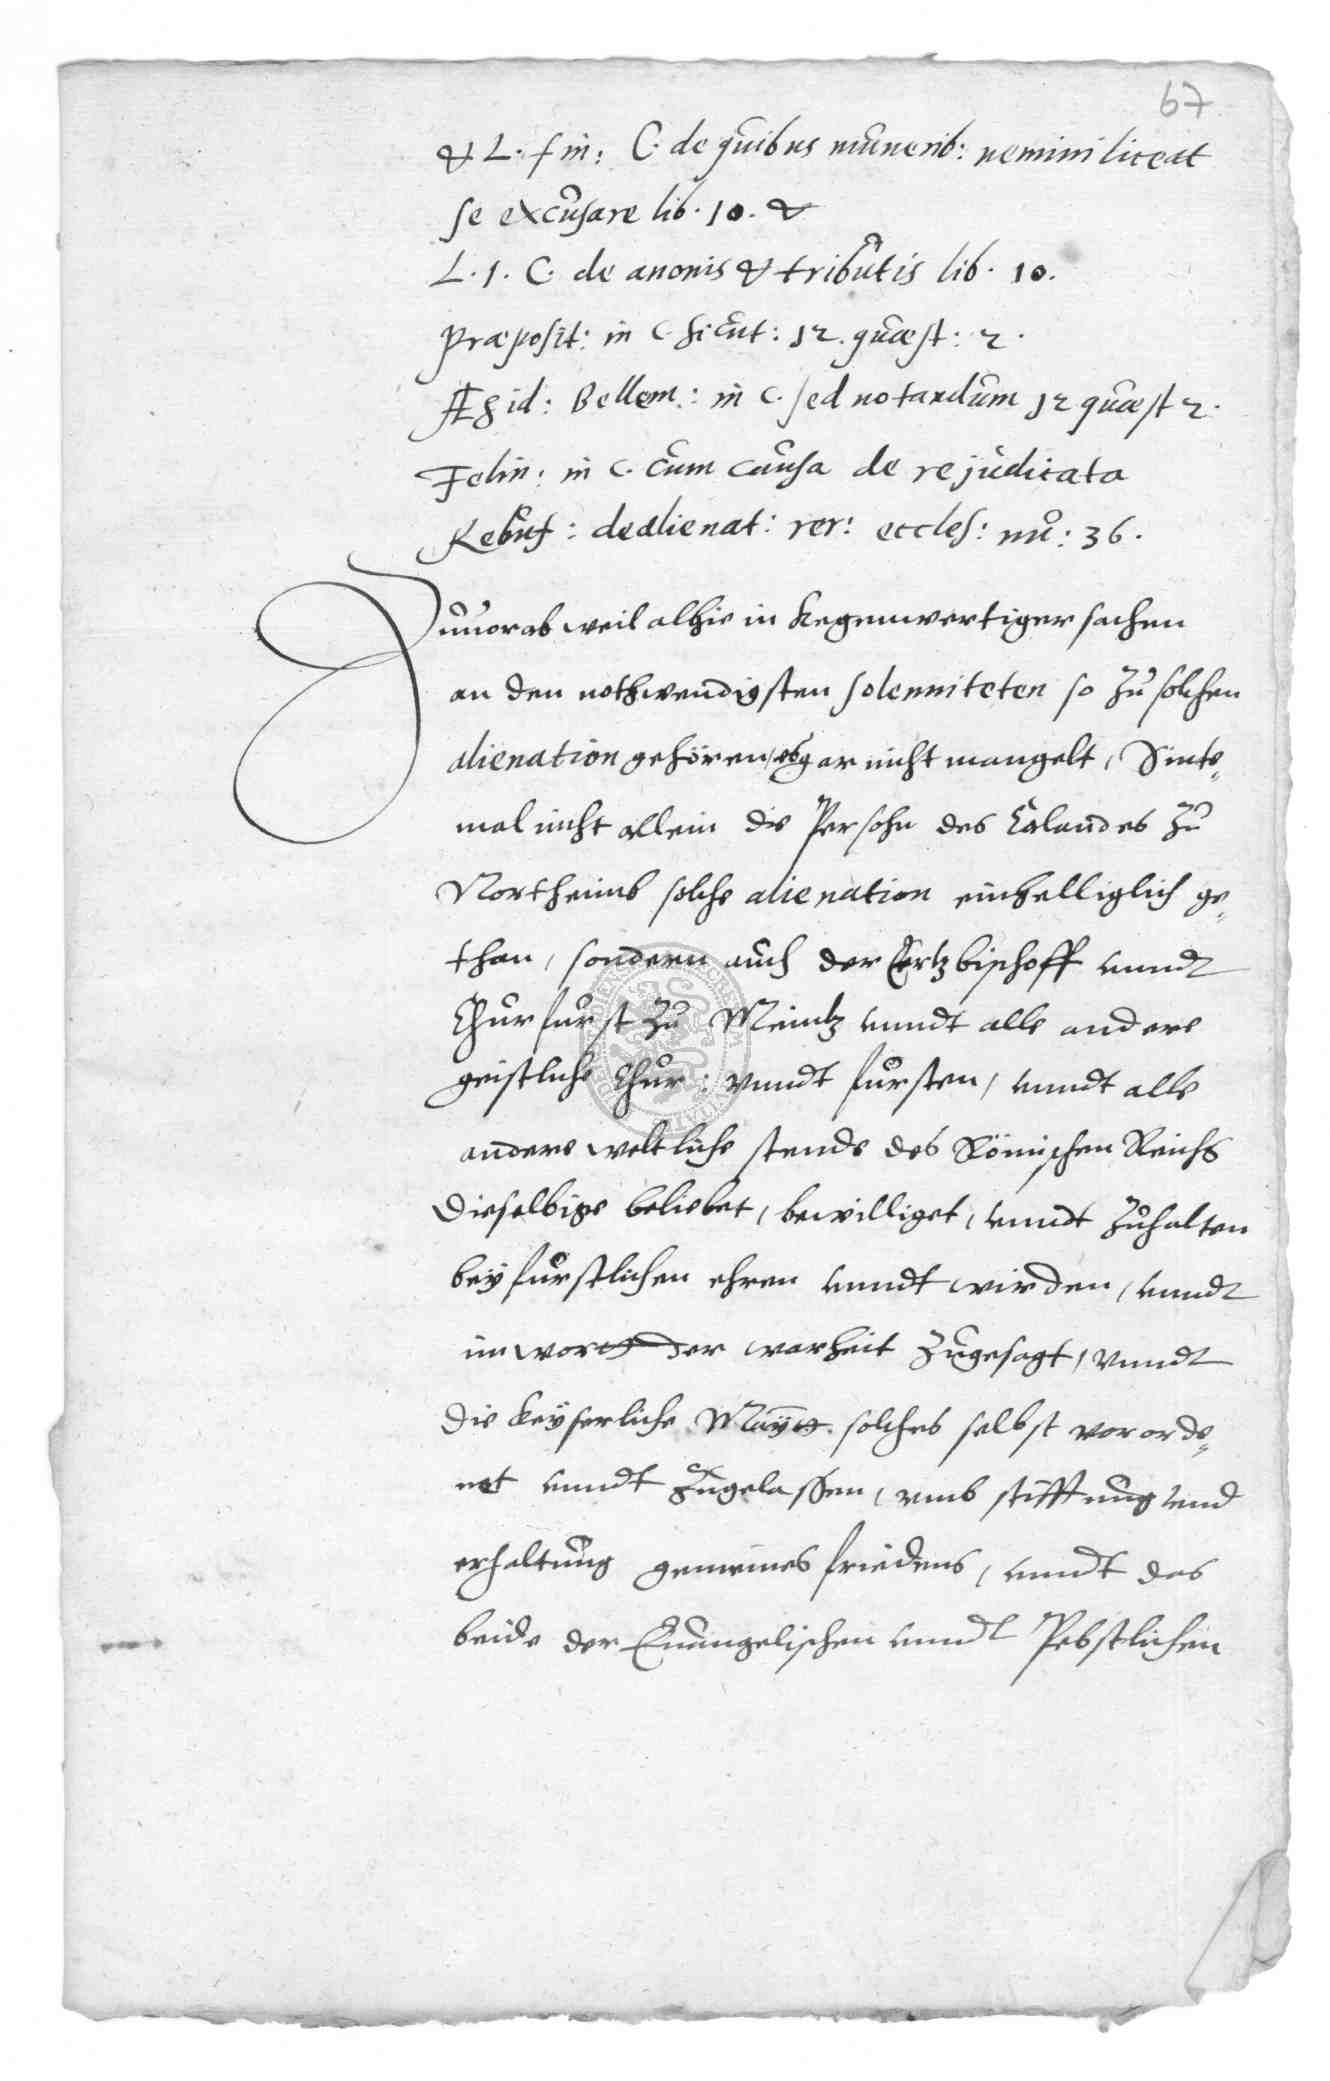 67
& L. fin: C. de quibus munerib: nemini liceat
se excusare lib. 10. &
L. 1. C. de anonis & tributis lib. 10.
Præposit: in C. sicut: 12. quæst: 2.
Ægid: Bellem: in c. sed notandum 12 quæst 2.
Felin: in c. cum causa de re judicata
Rebuf: de alienat: rer: eccles: nu: 36.
Zuuorab weil alhie in kegenwertiger sachen
an den nothwendigsten solenniteten so zu solchen
alienation gehören, es gar nicht mangelt, Sinte¬
mal nicht allein die Persohn des Calandes zu
Northeimb solche alienation einhelliglich ge¬
than, sondern auch der Ertzbischoff vnndt
Churfurst zu Meintz vnndt alle andere
geistliche Chur: vnndt fursten, vnndt alle
andere weltliche stende des Römischen Reichs
dieselbige beliebet, bewilliget, vnndt zuhalten
bey furstlichen ehren vnndt wirden, vnndt
im wort der warheit zugesagt, vnndt
die Keyserliche Maytt. solches selbst verorde¬
net vnndt zugelassen, vmb stifftung vnd
erhaltung gemeines friedens, vnndt das
beide der Euangelischen vnndt Pebstlichen